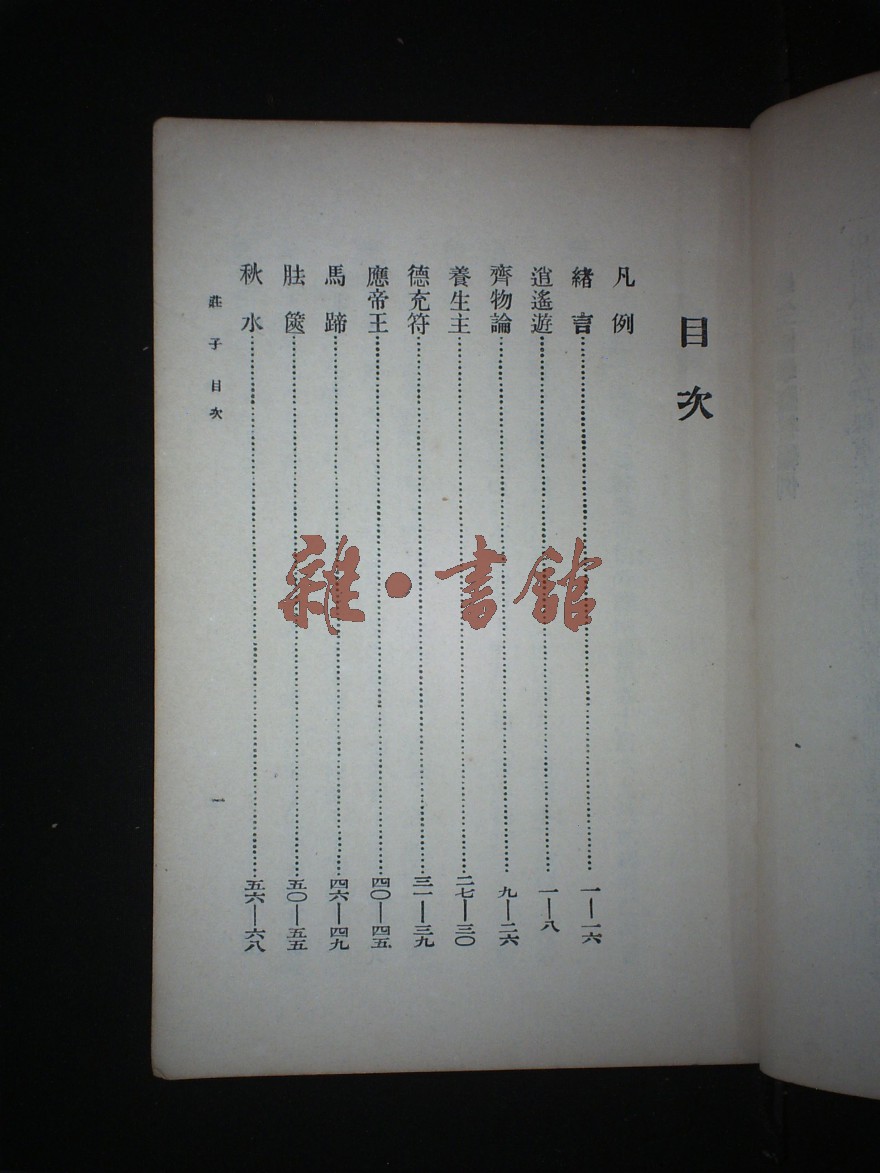 目次
凡例
緒言……一—一六
逍遙遊……一—八
齊物論……九—二六
養生主……二七—三〇
德充符……三一—三九
應帝王……四〇—四五
馬蹄……四六—四九
胠篋……五〇—五五
秋水……五六—六八
莊子目次
一
雜·書館